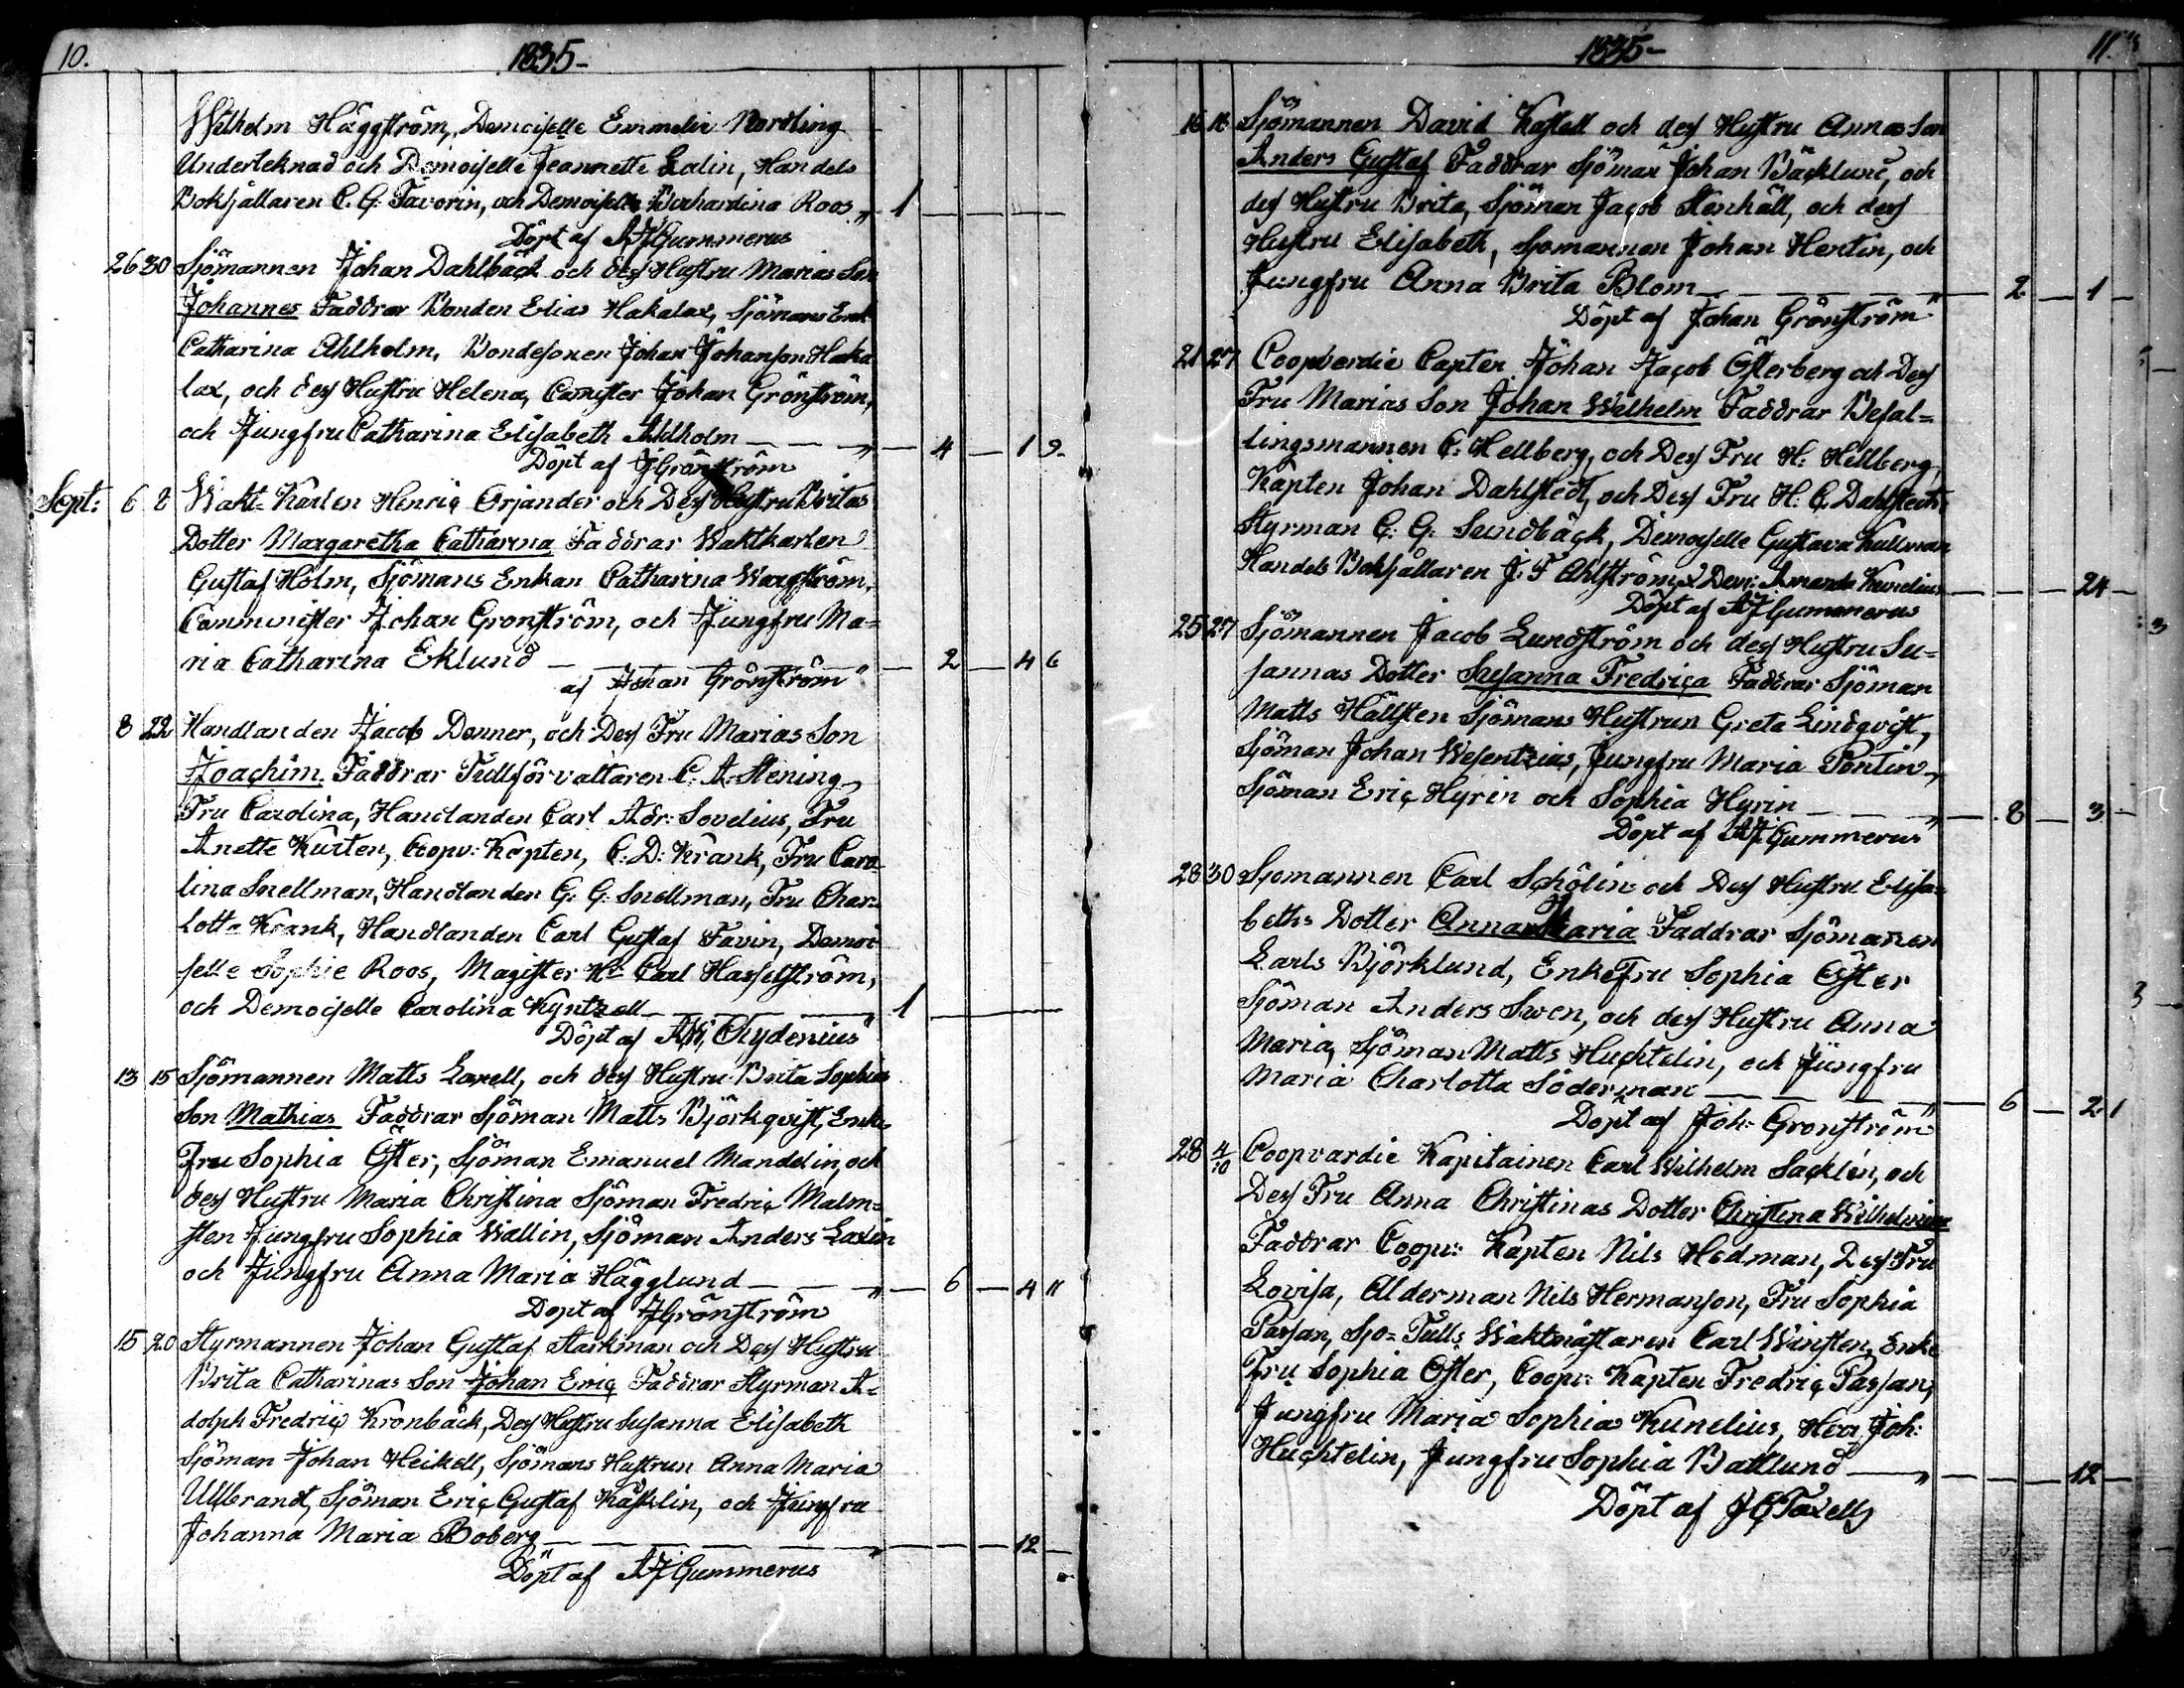 10.
1835-
Wilhelm Häggström, Demoiselle Emmelie Nordling
Underteknad och Demoiselle Jeannette Lalin, Handels
Bokhållaren C. G. Favorin, och Demoiselle Bernhardina Roos „ 1
Döpt af A J Gummerus
26 30 Sjömannen Johan Dahlbäck och dess Hustru Marias Son
Johannes Faddrar Bonden Elias Hakalax, Sjömans Enk
Catharina Ahlholm, Bondesonen Johan Johanson Haka
lax, och dess Hustru Helena, Comister Johan Grönström,
och Jungfru Catharina Elisabeth Ahlholm „ 4 19
Döpt af J Grönström
Sept: 6 8 Wakt-Karlen Henric Orjander och Dess Hustru Britas
Dotter Margaretha Catharina Faddrar Waktkarlen
Gustaf Holm, Sjömans Enkan Catharina Wargström,
Comminister Johan Gronström, och Jungfru Ma=
ria Catharina Eklund „ 2 4 6
af Johan Grönström
8 22 Handlanden Jacob Donner, och Dess Fru Marias Son
Joachim. Faddrar Tullförvaltaren C. A. Stening,
Fru Carolina, Handlanden Carl Adr: Sovelius, Fru
Anette Kurten, Coopv: Kapten, C: D: Krank, Fru Caro
lina Snellman, Handlanden G. G. Snellman, Fru Char=
lotta Krank, Handlanden Carl Gustaf Favin, Demoi
selle Sophie Roos, Magister Hr Carl Hasselström,
och Demoiselle Carolina Kyntzell „ 1
Döpt af A W Chydenius
13 15 Sjömannen Matts Laxell, och dess Hustru Brita Sophias
Son Mathias Faddrar Sjöman Matts Björkqvist, Enke
Fru Sophia Öster, Sjöman Emanuel Mandelin, och
dess Hustru Maria Christina Sjöman Fredric Malm=
sten Jungfru Sophia Wallin, Sjöman Anders Laxlin
och Jungfru Anna Maria Hägglund „ 6 4 11
Döpt af J Grönström
15 20 Styrmannen Johan Gustaf Starkman och Dess Hustru
Brita Catharinas Son Johan Eric Faddrar Styrman A=
dolph Fredric Kronbäck, Dess Hustru Susanna Elisabeth
Sjöman Johan Heikell, Sjömans Hustrun Anna Maria
Ullbrandt, Sjöman Eric Gustaf Käcklin, och Jungfru
Johanna Maria Boberg „ 12
Döpt af A J Gummerus
1835-
11.
16 18 Sjömannen David Kastell och dess Hustru Annas Son
Anders Gustaf Faddrar Sjöman Johan Bäcklund, och
dess Hustru Brita, Sjöman Jacob Stenhäll, och dess
Hustru Elisabeth, Sjomannen Johan Hentin, och
Jungfru Anna Brita Blom „ 2 1
Döpt af Johan Grönström
21 27 Coopverdie Capten Johan Jacob Österberg och Dess
Fru Marias Son Johan Wilhelm Faddrar Befal=
lingsmannen C: Hellberg, och Dess Fru H: Hellberg,
Kapten Johan Dahlstedt, och Dess Fru H. C. Dahlstedt
Styrman C: G. Sundbäck, Demoiselle Gustava Kullman
Handels Bokhållaren J: F Ahlström, & Dem: Amanda Kunelius 24
Döpt af A J Gummerus
25 27 Sjömannen Jacob Lundström och dess Hustru Su=
sannas Dotter Susanna Fredrica Faddrar Sjöman
Matts Hällsten Sjömans Hustrun Greta Lindqvist,
Sjöman Johan Wesentzius, Jungfru Maria Pontin,
Sjöman Eric Hyrin och Sophia Hyrin „ 8 3
Döpt af A J Gummerus
28 30 Sjomannen Carl Schölin och Dess Hustru Elisa=
beths Dotter Anna Maria Faddrar Sjömannen
Carls Björklund, Enke Fru Sophia Öster
Sjöman Anders Swen, och dess Hustru Anna
Maria, Sjöman Matts Huchtelin, och Jungfru
Maria Charlotta Söderman „ 6 21
Döpt af Joh: Gronström
28 4/10 Coopvardie Kapitainen Carl Wilhelm Sacklén, och
Dess Fru Anna Christinas Dotter Christina Wilhelmina
Faddrar Coopv: Kapten Nils Hedman, Dess Fru
Lovisa, Alderman Nils Hermanson, Fru Sophia
Passan, Sjo=Tulls Waktmästaren Carl Winsten, Enke
Fru Sophia Öster, Coopv: Kapten Fredric Passan,
Jungfru Maria Sophia Kunelius, Herr Joh:
Huchtelin, Jungfru Sophia Backlund „ 12
Döpt af J C Taxell